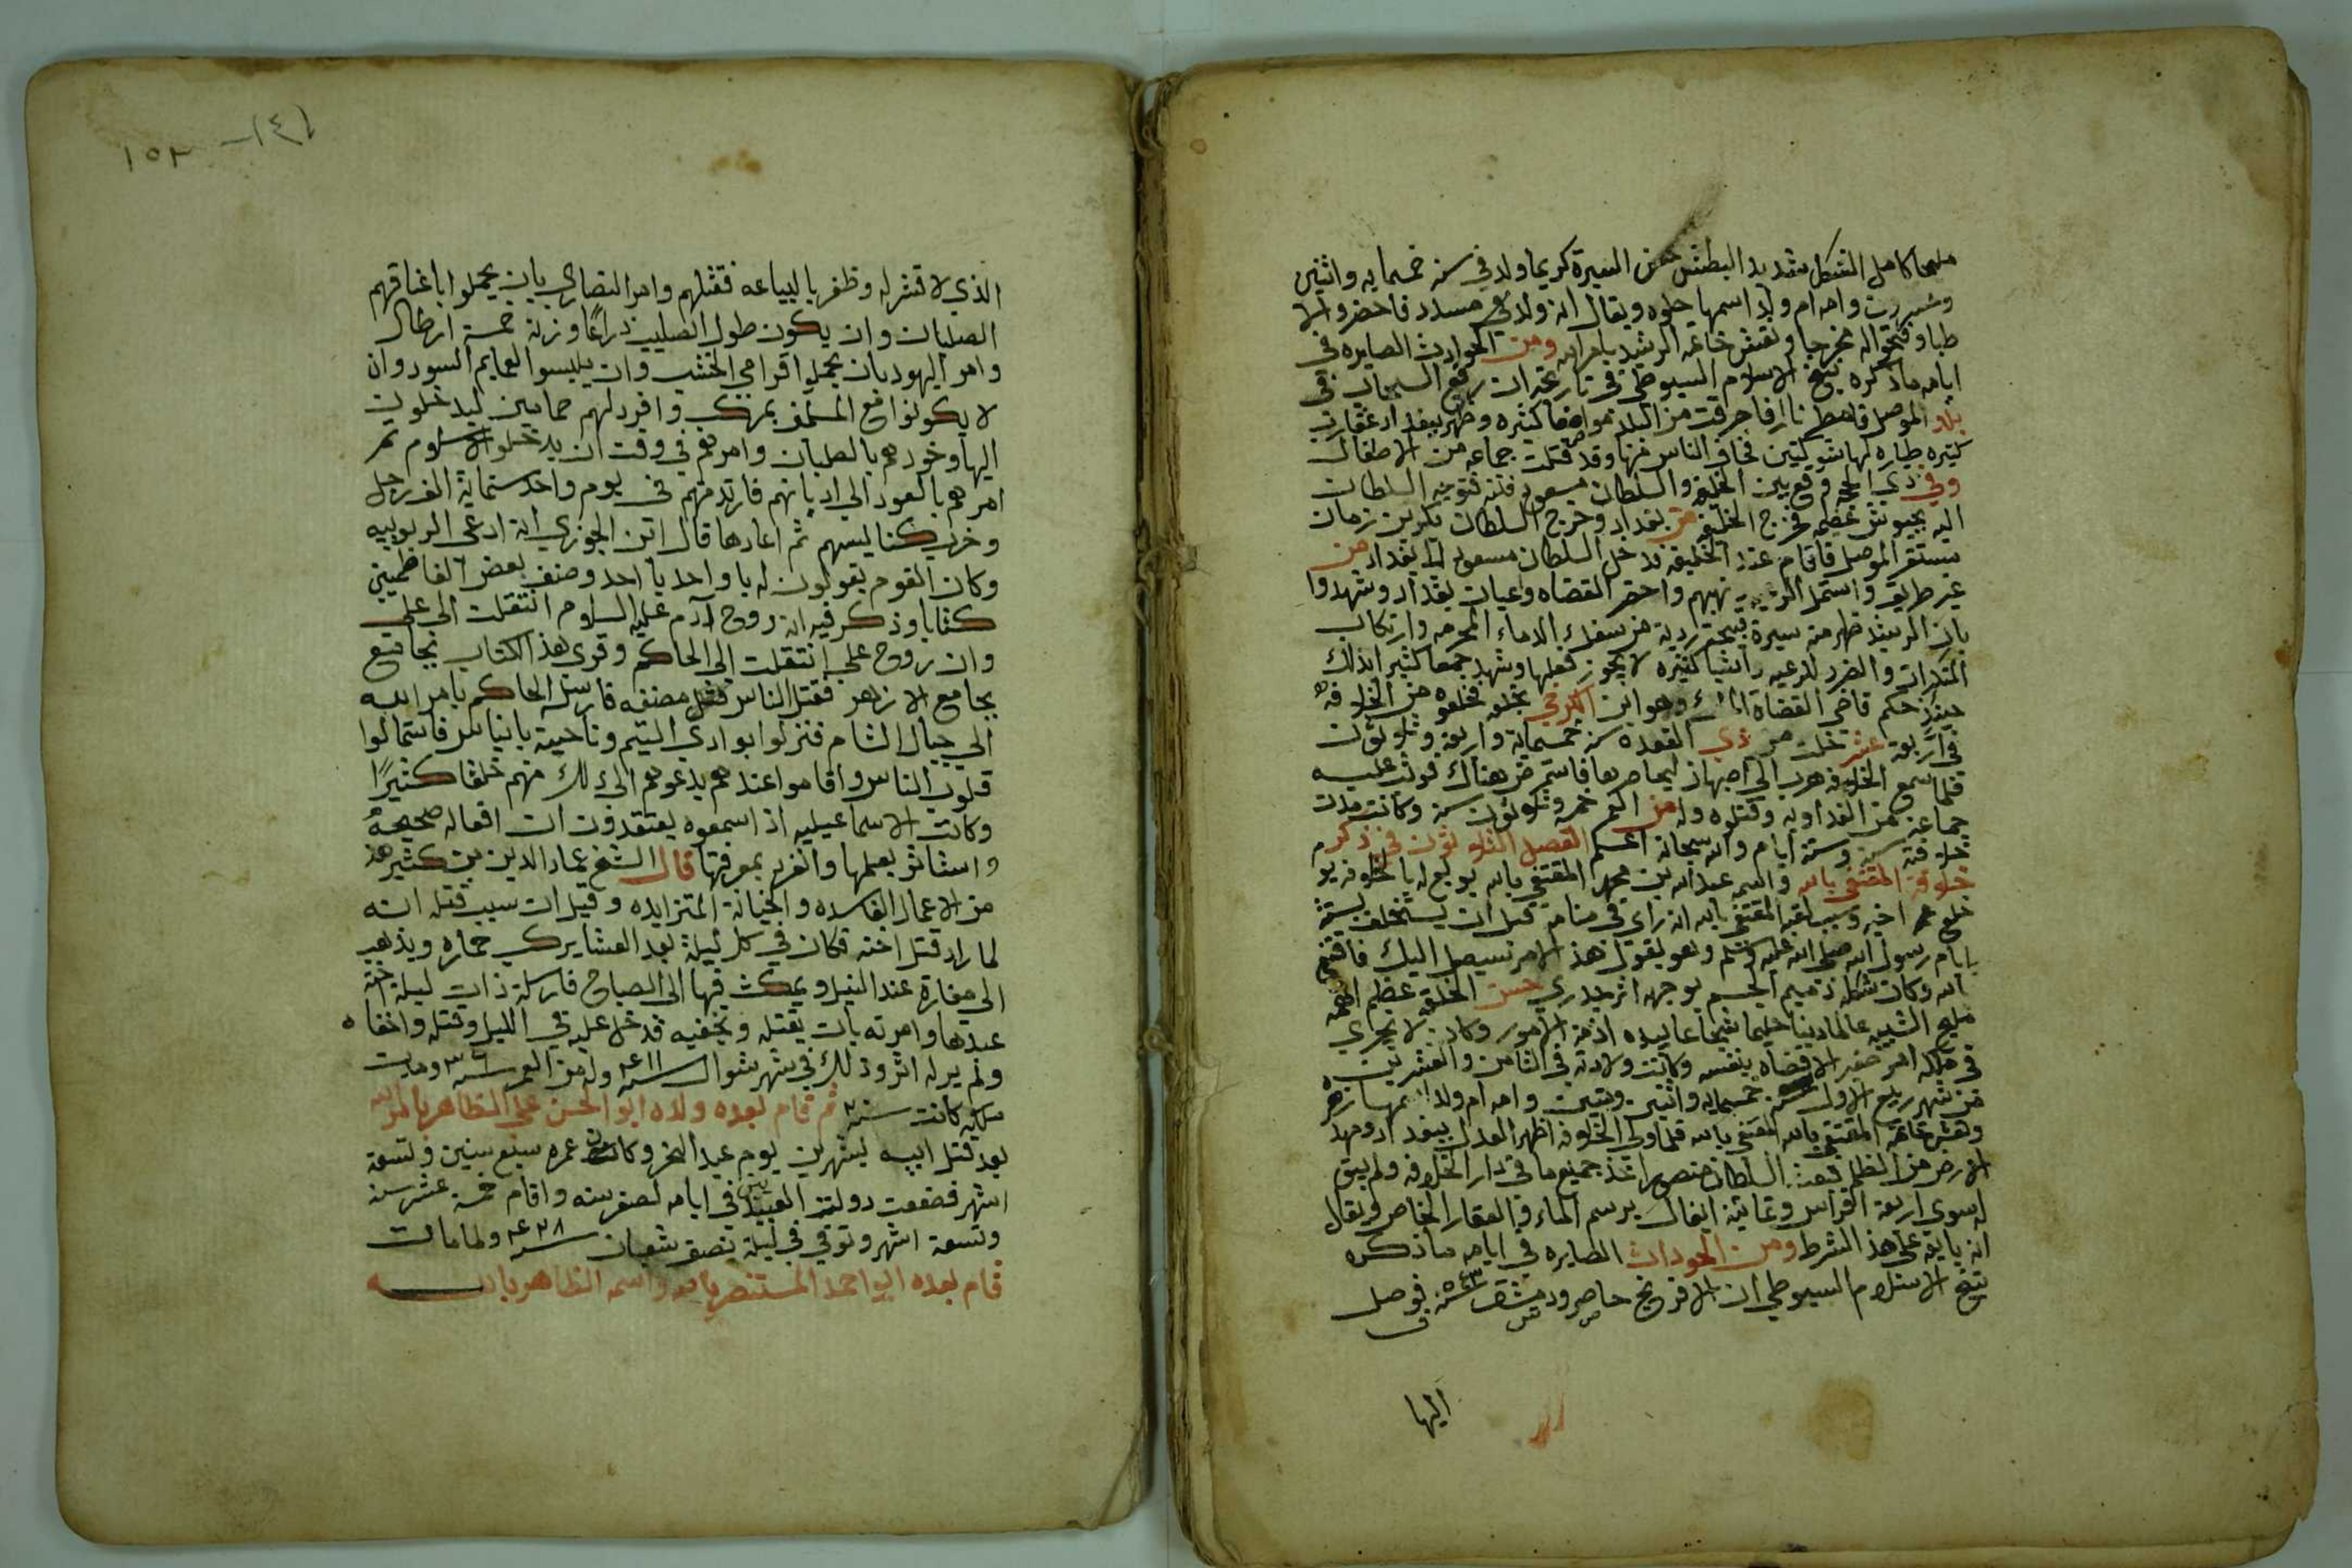 مليحا كامل الشكل شديد البطش حسن السيرة كريما ولد في سنة خمسمايه واثنين
وامه ام ولد اسمها حلوه ويقال انه ولد مسدد فاحضروا الا
طبا وفتحوا له مخرجا ونقش خاتمه الرشيد بامر الله ومن الحوادث الصايره في
ايامه ما ذكره شيخ الاسلام السيوطي في تاريخه ان رفع السحاب في
بلاد الموصل فامطر نارا فاحرقت من البلد مواضعا كثيره وظهر ببغداد عقارب
كثيره طياره لها شوكتين فخاف الناس منها وقد قتلت جماعه من الاطفال
وفي ذي الحجه وقع بين الخليفه والسلطان مسعود فتنه فتوجه السلطان
اليه بجيوش عظيمه فخرج الخليفه من بغداد وخرج السلطان
مستقر الموصل فاقام عند الخليفه فدخل السلطان مسعود الى بغداد من
غير طريق واستمل نهبهم واحضر القضاه واعيان بغداد وشهدوا
بان الرشيد ظهر منه سيرة قبيحة ردية من سفك الدماء المحرمه وارتكاب
المنكرات والضرر للرعيه واشيا كثيره لا يجوز فعلها وشهد جمعا كثيرا بذلك
حينئذ حكم قاضي القضاة وهو ابن الكرخي بخلعه فخلعوه من الخلافه
في اربعة عشر خلت من ذي القعده سنه خمسماية واربعة وثلاثون
فلما سمع الخلافه هرب الى اصبهان ليحاصرها فاستمر من هناك فوثب عليه
جماعة من الفداويه وقتلوه وله من العمر خمسه وثلاثون سنه وكانت مدت
خلافته سنه وستة ايام والله سبحانه اعلم الفصل الثلاثون في ذكر
خلافة المقتفي بالله واسمه عبد الله بن محمد المقتفي بالله بويع له بالخلافه يو
خلع اخيه وسبب لقبه المقتفي بالله انه راي في منامه قبل ان يستخلف بستة
ايام رسول الله صلى الله عليه وسلم وهو يقول هذا الامر سيصل اليك فاقتفي
بالله وكان شكله ذميم الجسم بوجهه اثر جدري حسن الخلقه عظيم الهمه
مليح الشيبه عالما دينا حليما شجاعا بيده ازمة الامور وكان لا يجري
في ملكه امر صغير الا قضاه بنفسه وكانت ولادته في الثامن والعشرين
من شهر ربيع الاول سنة خمسمايه واثنين وستين وامه ام ولد اسمها زهر
ونقش خاتمه المقتفي بالله المقتفي بالله فلما ولي الخلافه اظهر العدل ببغداد ومهد
الارض من الظلم فبعث السلطان اخذ جميع ما في دار الخلافه ولم يبق
له سوى اربعة افراس وثمانية ابغال برسم الماء والعقار الخاص ويقال
انه بايعه على هذا الشرط ومن الحوداث الصايره في ايامه ما ذكره
شيخ الاسلام السيوطي ان الافرنج حاصرو دمشق سنة ٥٤٣ فوصل
اليها
١٥٣
الذي لاقتر له وظفر بالبياعه فقتلهم وامر النصاري بان يحملوا باعناقهم
الصلبان وان يكون طول الصليب ذراعا وزنه خمسة ارطال
وامر اليهود بان يحملوا قرامي الخشب وان يلبسوا العمايم السود وان
لا يكونوا مع المسلمين بمركب وافرد لهم حمامين ليدخلون
اليها وخودهم بالصلبان وامرهم في وقت ان يدخلو الاسلام ثم
امرهم بالعود الى اديانهم فارتد منهم في يوم واحد ستماية الف رجل
وخرب كنايسهم ثم اعادها قال ابن الجوزي انه ادعى الربوبيه
وكان القوم يقولون له يا واحد يا احد وصنف بعض الفاطميين
كتابا وذكر فيه ان روح آدم عليه السلام انتقلت الى علي
وان روح علي انتقلت الى الحاكم وقرى هذا الكتاب
بجامع الازهر فقتل الناس مصنفه فارسله الحاكم بامر الله
الى جبال الشام فنزلوا بوادي التيم وناحية بانياس فاستمالوا
قلوب الناس واقاموا عندهم يدعوهم الى ذلك منهم خلقا كثيرًا
وكانت الاسماعيليه اذا سمعوه يعتقدون ان افعاله صحيحة
واستاثر بعملها وانفرد بمعرفتها قال الشيخ عماد الدين بن كثير هذ
من الاعمال الفاسده والخيانة المتزايده وقيل ان سبب قتله انه
لما راد قتل اخته فكان في كل ليلة بعد العشا يركب حماره ويذهب
الى مغارة عند النيل ويمكث فيها الى الصباح فارسلة ذات ليلة اخته
عبدها وامرته بان يقتله ويخفيه فدخل عليه في الليل وقتله واخفاه
ولم ير له اثر وذلك في شهر شوال سنة ٤١١ وله من العمر سنة ٣٦ ومدت
ملكه كانت سنة ثم قام بعده ولده ابو الحسن علي الظاهر بالله
بعد قتل ابيه بشهرين يوم عيد النحر وكان عمره سبع سنين وتسعة
اشهر فضعفت دولة العبيديين في ايامه لصغر سنه واقام خمسة عشر سنه
وتسعة اشهر وتوفي في ليلة نصف شعبان سنة ٤٢٨ ولما مات
قام بعده ابو احمد المستنصر بالله واسمه الظاهر بالله